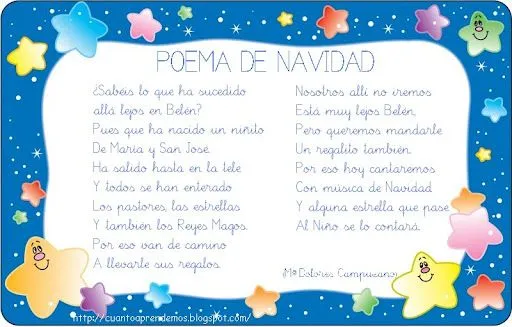 POEMA DE NAVIDAD
¿Sabéis lo que ha sucedido
allá lejos en Belén?
Pues que ha nacido un niñito
De María y San José.
Ha salido hasta en la tele
Y todos se han enterado
Los pastores, las estrellas
Y también los Reyes Magos.
Por eso van de camino
A llevarle sus regalos.
Nosotros allí no iremos
Está muy lejos Belén,
Pero queremos mandarle
Un regalito también.
Por eso hoy cantaremos
Con música de Navidad
Y alguna estrella que pase
Al Niño se lo contará.
Mª Dolores Campuzano
http://cuantoaprendemos.blogspot.com/